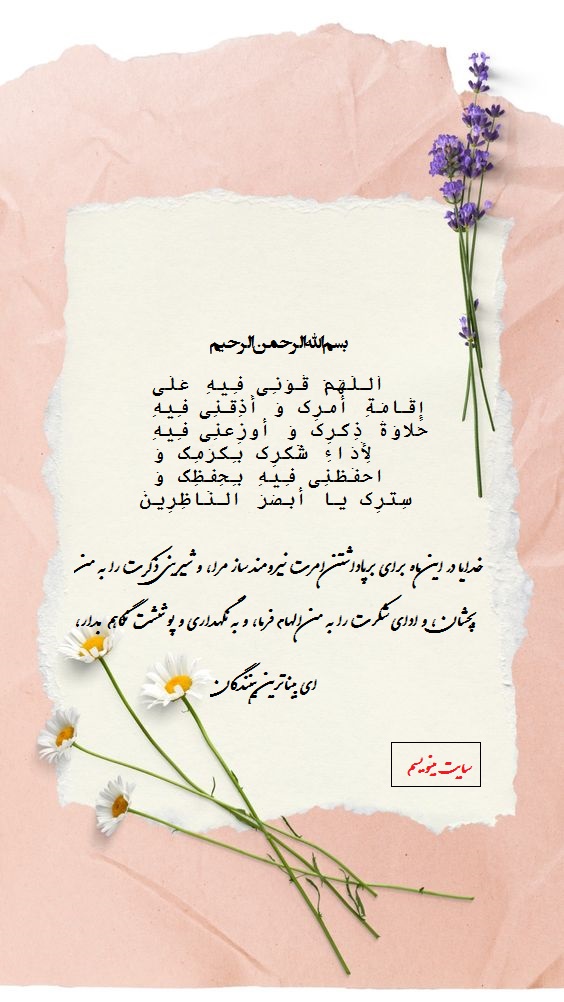 بسم الله الرحمن الرحیم
اَللّهُمَّ قَوِّنی فیهِ عَلَى
إِقامَةِ أَمرِکَ وَ أَذِقنی فیهِ
حَلاوَةَ ذِکرِکَ وَ أَوزِعنی فیهِ
لِأَداءِ شُکرِکَ بِکَرَمِکَ وَ
احفَظنی فیهِ بِحِفظِکَ وَ
سِترِکَ یا أَبصَرَ النّاظِرینَ
خدایا در این ماه برای برپاداشتن امرت نیرومند ساز مرا، و شیرینی ذکرت را به من
بچشان، و ادای شکرت را به من الهام فرما، و به نگهداری و پوششت نگاهم بدار،
ای بیناترین بینندگان
سایت مینویسم